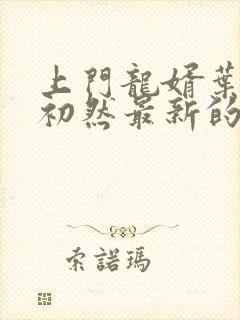 上門龍婿葉
初然最新的
索諾瑪